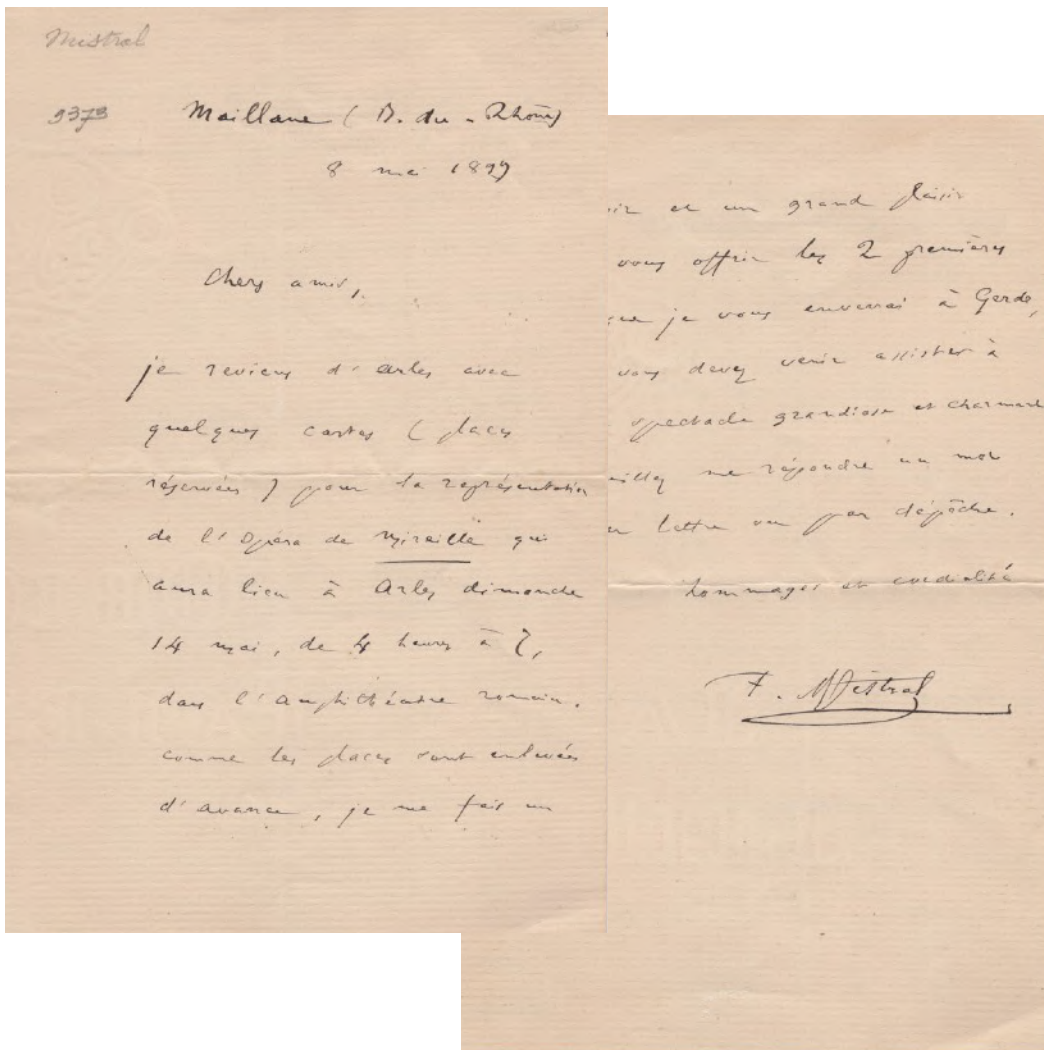 Mistral
9373
Maillane (B. du-Rhône)
8 mai 1899
Chers amis,
je reviens d'arles avec
quelques cartes (places
réservées) pour la représentation
de l'Opéra de Mireille qui
aura lieu à Arles dimanche
14 mai, de 4 heures à 7,
dans l'amphithéâtre romain.
comme les places sont enlevées
d'avance, je me fais un
et un grand plaisir
vous offrir les 2 premières
je vous enverrai à Gerde,
vous devez venir assister à
spectacle grandiose et charmant
me répondre un mot
lettre ou par dépêche.
hommages et cordialité
F. Mistral